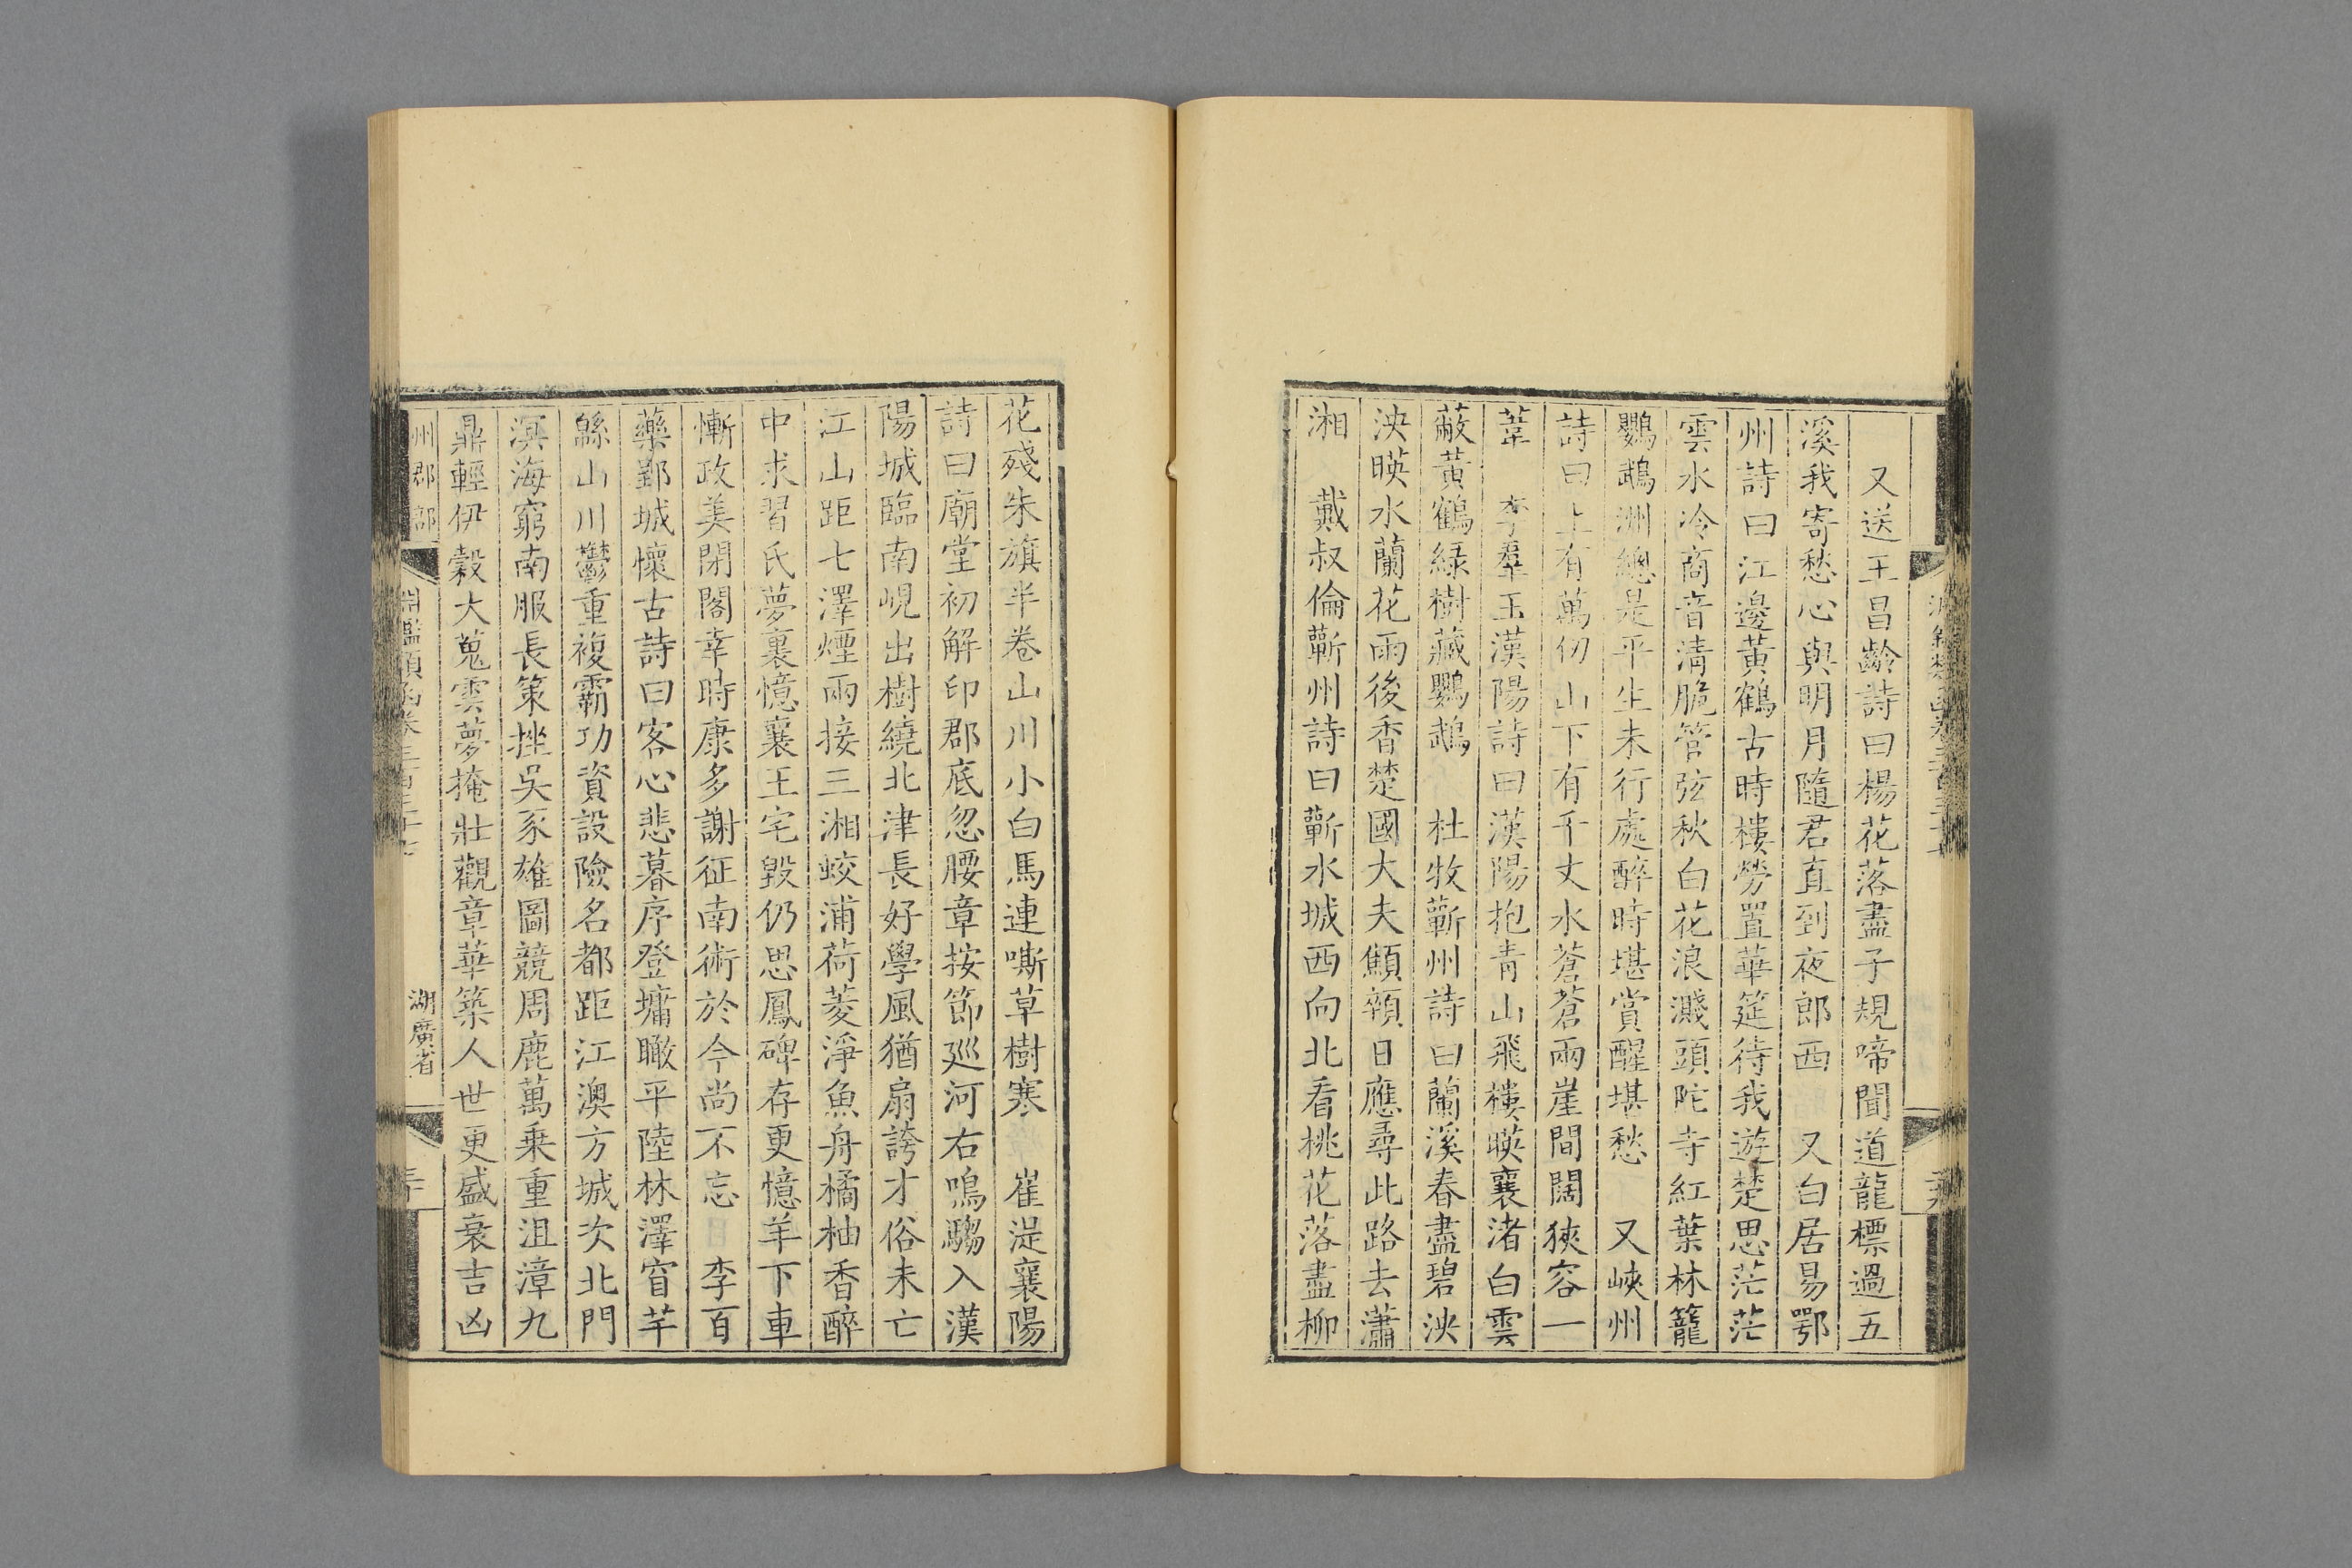 又送王昌齡詩曰楊花落盡子規啼聞道龍標過五
溪我寄愁心與明月隨君直到夜郎西　又白居易鄂
州詩曰江邊黃鶴古時樓勞置華筵待我遊楚思茫茫
雲水冷商音淸脆管弦秋白花浪濺頭陀寺紅葉林籠
鸚鵡洲總是平生未行處醉時堪賞醒堪愁　又峽州
詩曰上有萬仞山下有千丈水蒼蒼兩崖間闊狹容一
葦　李羣玉漢陽詩曰漢陽抱青山飛樓暎襄渚白雲
蔽黃鶴綠樹藏鸚鵡　杜牧蘄州詩曰蘭溪春盡碧泱
泱暎水蘭花雨後香楚國大夫顦顇日應尋此路去瀟
湘　戴叔倫蘄州詩曰蘄水城西向北看桃花落盡柳
花殘朱旗半卷山川小白馬連嘶草樹寒　崔湜襄陽
詩曰廟堂初解印郡底忽腰章按節廵河右鳴騶入漢
陽城臨南峴出樹繞北津長好學風猶扇誇才俗未亡
江山距七澤煙雨接三湘蛟浦荷菱淨魚舟橘柚香醉
中求習氏夢裏憶襄王宅毀仍思鳳碑存更憶羊下車
慚政美閉閣幸時康多謝征南術於今尚不忘　李百
藥郢城懷古詩曰客心悲暮序登墉瞰平陸林澤窅芊
緜山川鬱重複霸功資設險名都距江澳方城次北門
溟海窮南服長策挫吳豕雄圖競周鹿萬乗重沮漳九
鼎輕伊穀大蒐雲夢掩壯觀章華築人世更盛衰吉凶
州郡部
淵鑑類函卷三百三十七
湖廣省
三十